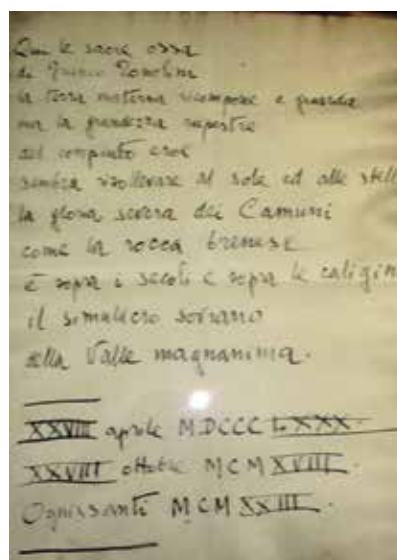 Qui le sacre ossa
di Enrico Tonolini
la terra materna ricompone e guarda
ma la grandezza rupestre
del compiuto eroe
sembra risollevare al sole ed alle stell
la gloria dei Camuni
come la rocca brenese
è sopra i secoli e sopra le caligin
il simulacro sovrano
della Valle magnanima.
XXVIII aprile MDCCCLXXX.
XXVIII ottobre MCMXVIII.
Ognissanti MCMXXIII.